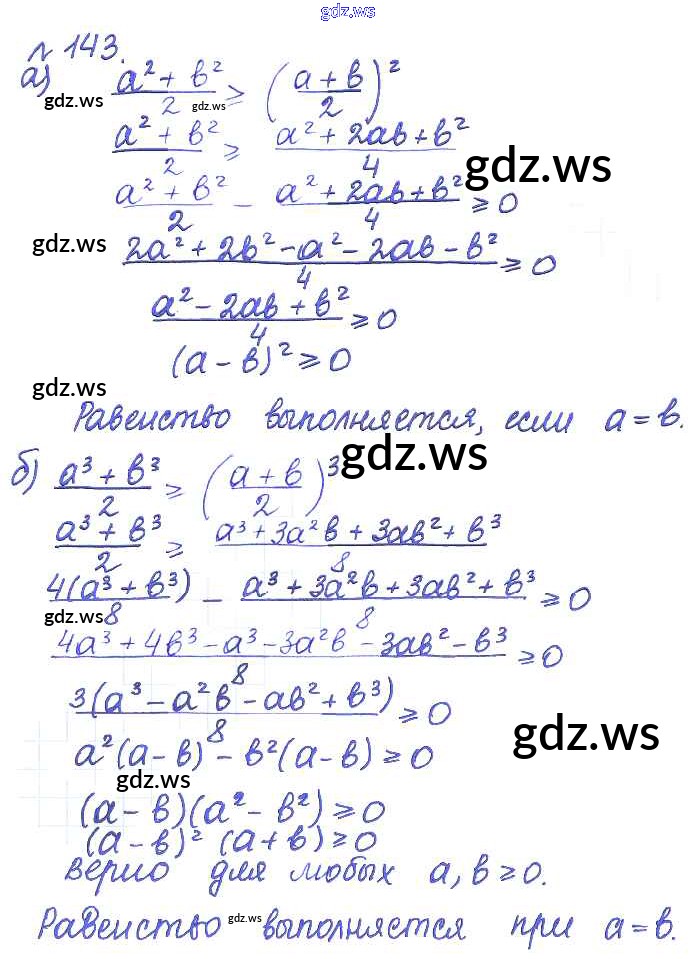 gdz.ws
№ 143.
а) (a² + b²)/2 ≥ ((a + b)/2)²
gdz.ws gdz.ws
(a² + b²)/2 ≥ (a² + 2ab + b²)/4
gdz.ws
(a² + b²)/2 - (a² + 2ab + b²)/4 ≥ 0
gdz.ws
(2a² + 2b² - a² - 2ab - b²)/4 ≥ 0
(a² - 2ab + b²)/4 ≥ 0
(a - b)² ≥ 0
gdz.ws
Равенство выполняется, если a = b.
gdz.ws
б) (a³ + b³)/2 ≥ ((a + b)/2)³
(a³ + b³)/2 ≥ (a³ + 3a²b + 3ab² + b³)/8
4(a³ + b³)/8 - (a³ + 3a²b + 3ab² + b³)/8 ≥ 0
gdz.ws
(4a³ + 4b³ - a³ - 3a²b - 3ab² - b³)/8 ≥ 0
3(a³ - a²b - ab² + b³)/8 ≥ 0
gdz.ws
a²(a - b) - b²(a - b) ≥ 0
gdz.ws
(a - b)(a² - b²) ≥ 0
(a - b)² (a + b) ≥ 0
верно для любых a, b ≥ 0.
Равенство gdz.ws выполняется при a = b.